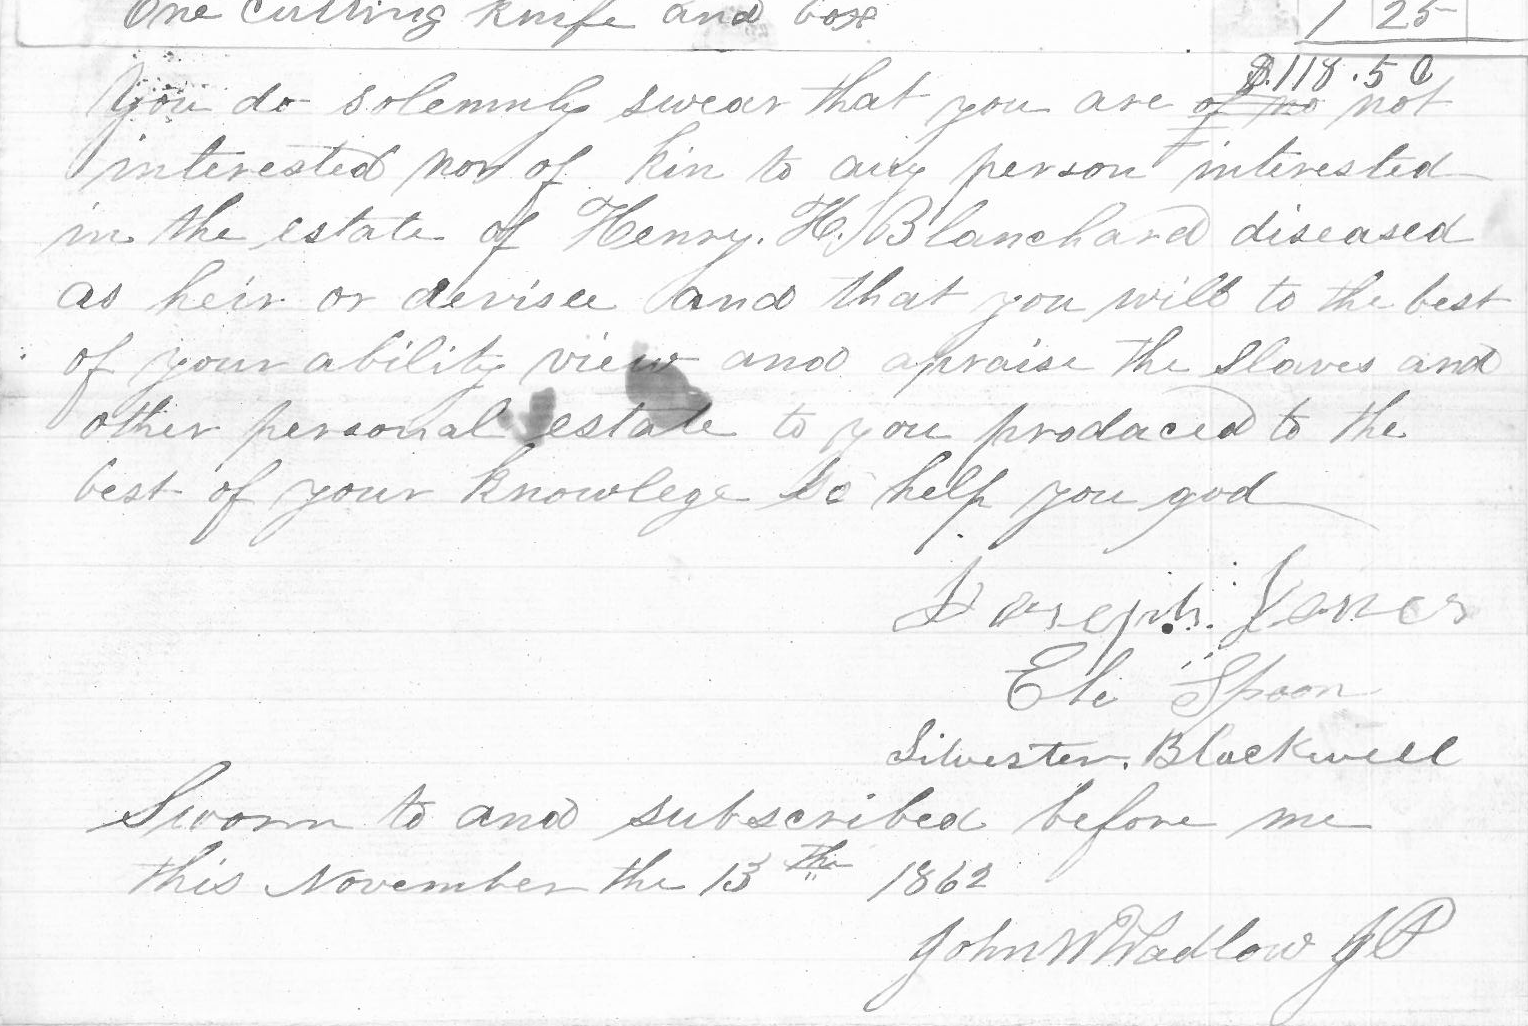 One cutting knife and box 1 25
$.118.50
You do solemnly swear that you are of no not
interested nor of kin to any person interested
in the estate of Henry. H. Blanchard diseased
as heir or devisee and that you will to the best
of your ability view and apraise the Slaves and
other personal estate to you produced to the
best of your knowlege So help you god
Joseph. Jones
Eli Spoon
Silvester. Blackwell
Sworn to and subscribed before me
this November the 13th 1862
John W Wadlow JP